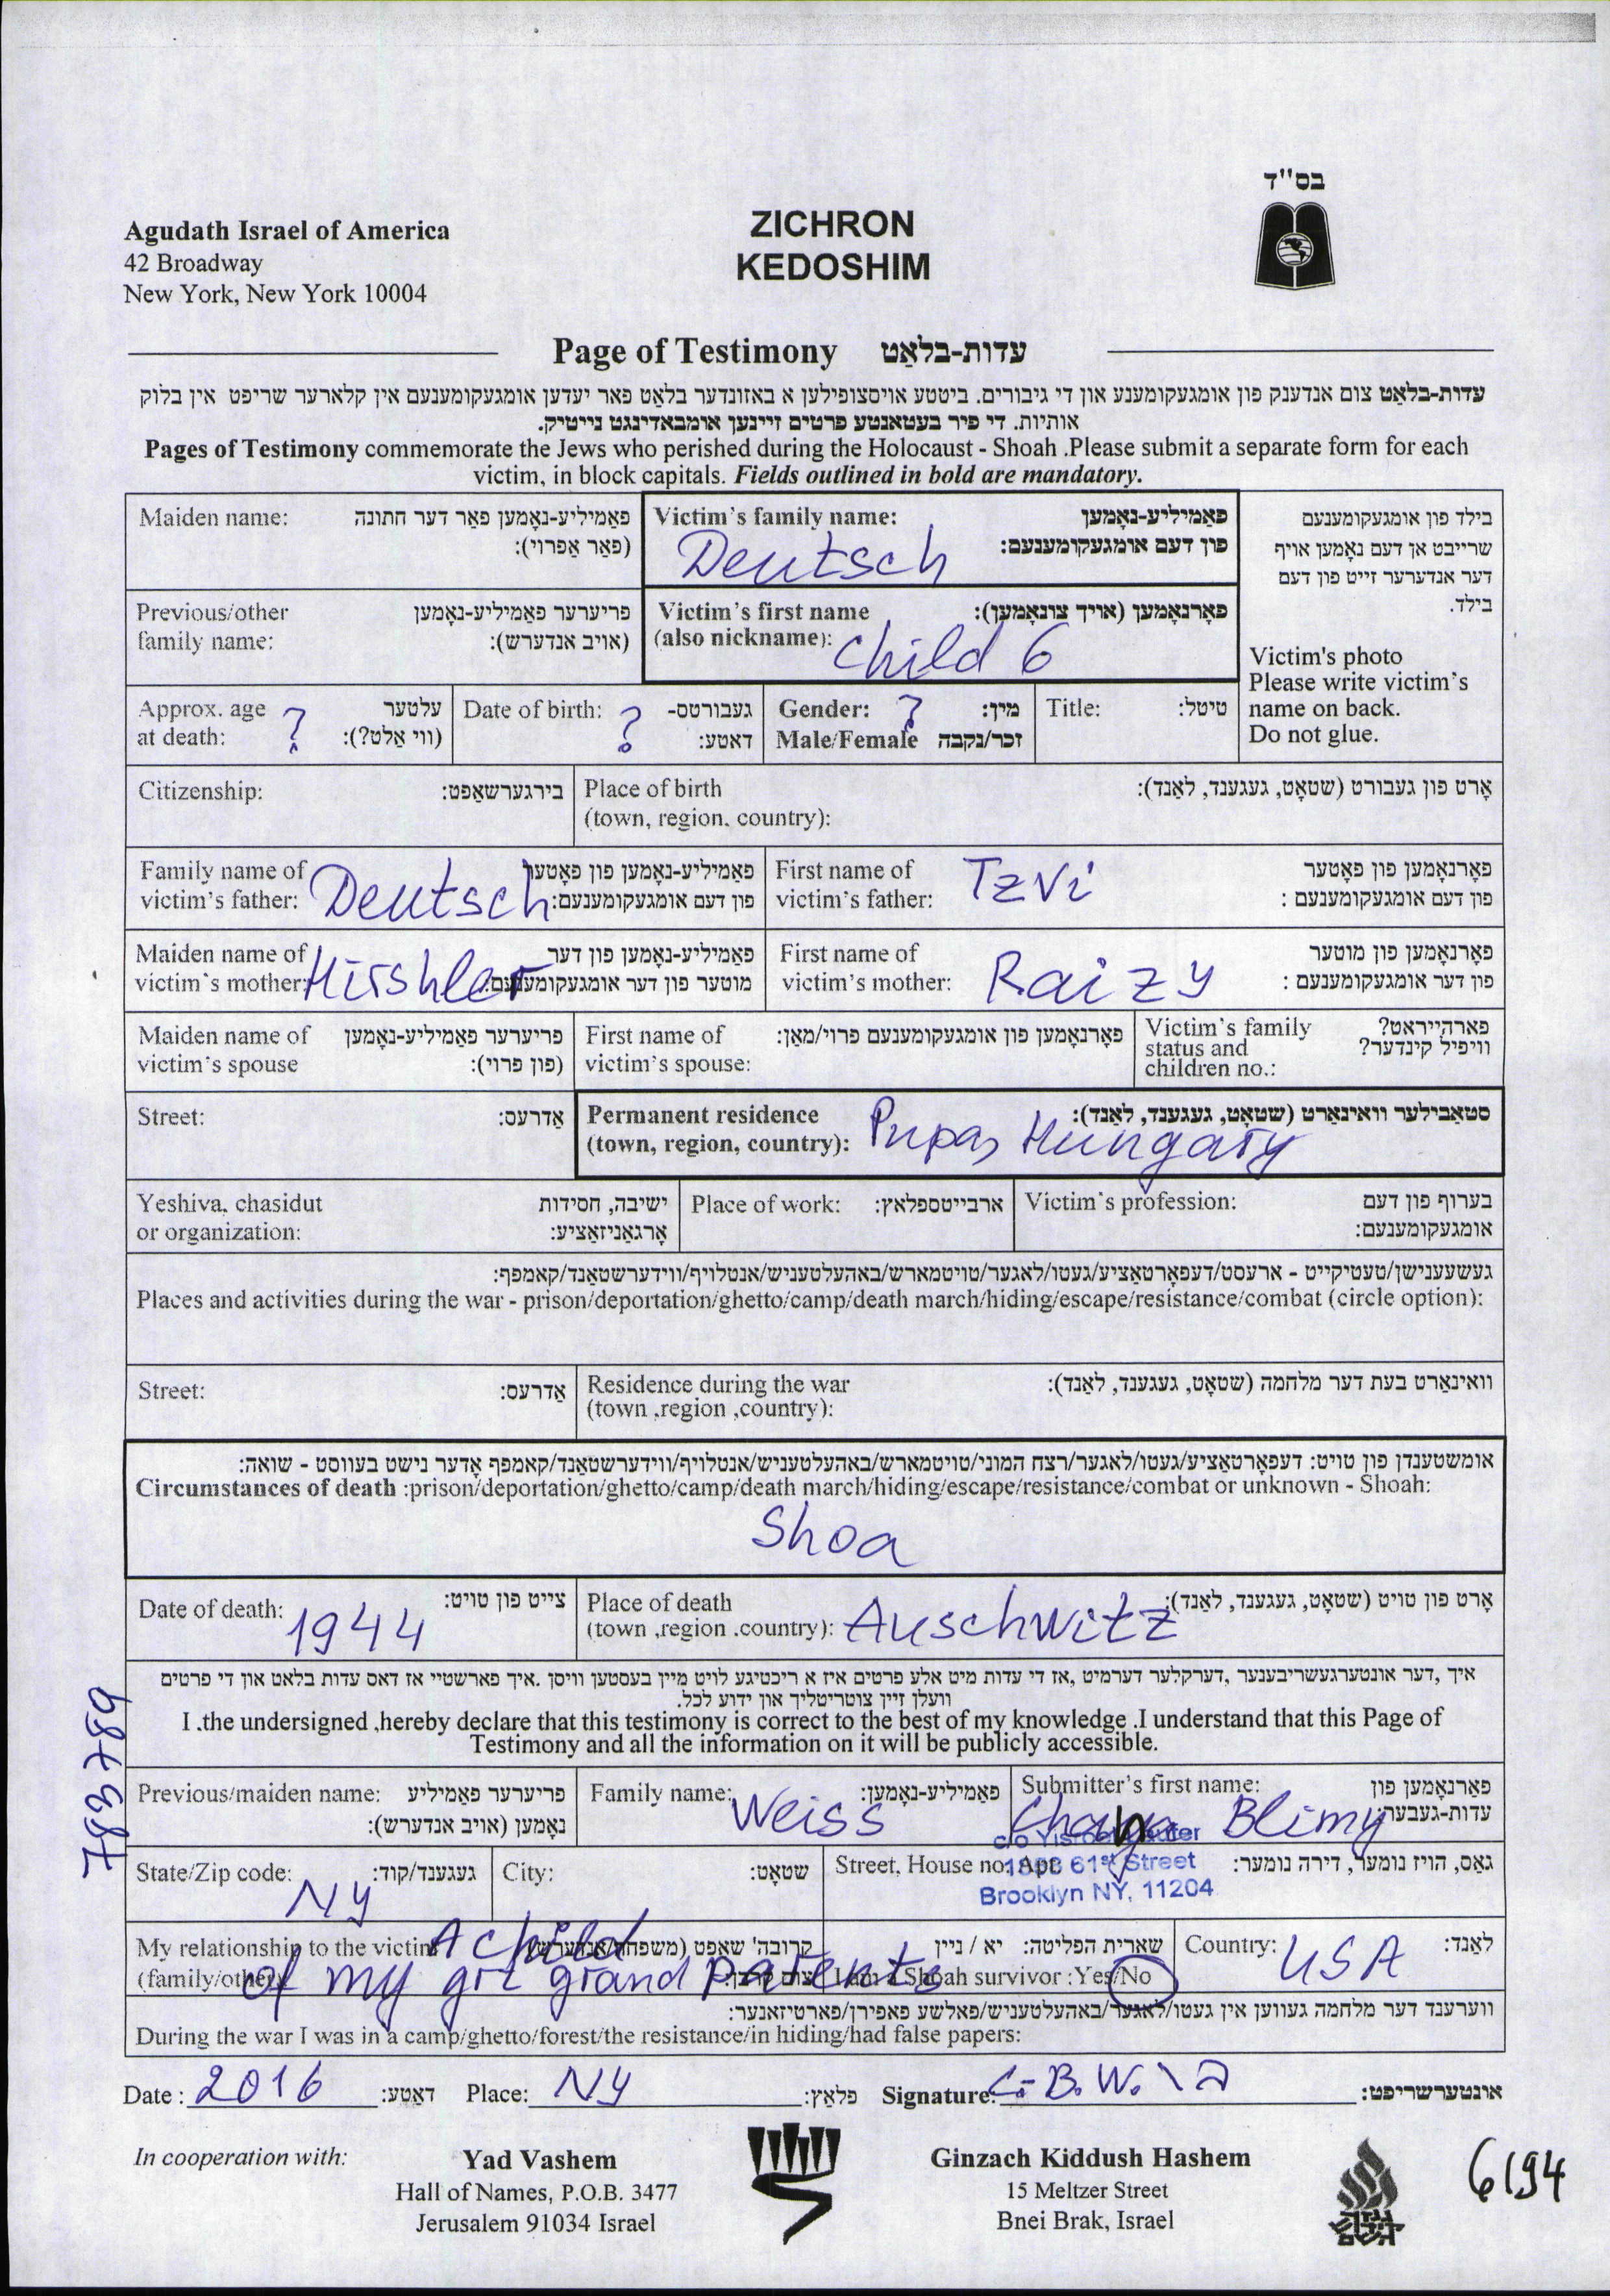 בס"ד
Agudath Israel of America
42 Broadway
New York, New York 10004
ZICHRON
KEDOSHIM
Page of Testimony עדות-בלאַט
עדות-בלאַט צום אנדענק פון אומגעקומענע און די גיבורים. ביטע אויסצופילען א באזונדער בלאַט פאר יעדען אומגעקומענעם אין קלארער שריפט אין בלוק
אותיות. די פיר בעטאנטע פרטים זיינען אומבאדינגט נייטיק.
Pages of Testimony commemorate the Jews who perished during the Holocaust - Shoah .Please submit a separate form for each
victim, in block capitals. Fields outlined in bold are mandatory.
Maiden name: פאַמיליע-נאָמען פאַר דער חתונה
(פאַר אַפרוי):
Victim's family name: פאַמיליע-נאָמען
פון דעם אומגעקומענעם:
Deutsch
בילד פון אומגעקומענעם
שרייבט אן דעם נאָמען אויף
דער אנדערער זייט פון דעם
בילד.
Victim's photo
Please write victim's
name on back.
Do not glue.
Previous/other פריערער פאַמיליע-נאָמען
family name: (אויב אנדערש):
Victim's first name פאָרנאָמען (אויך צונאָמען):
(also nickname): Child 6
Approx. age עלטער
at death: ? (ווי אַלט?):
Date of birth: ? געבורטס-
דאטע:
Gender: ? מין:
Male/Female זכר/נקבה
Title: טיטל:
Citizenship: בירגערשאַפט:
Place of birth אָרט פון געבורט (שטאָט, געגענד, לאַנד):
(town, region, country):
Family name of פאַמיליע-נאָמען פון פאָטער
victim's father: Deutsch פון דעם אומגעקומענעם:
First name of Tzvi פאָרנאָמען פון פאָטער
victim's father: פון דעם אומגעקומענעם :
Maiden name of פאַמיליע-נאָמען פון דער
victim's mother: Hirshler מוטער פון דער אומגעקומענעם:
First name of פאָרנאָמען פון מוטער
victim's mother: Raizy פון דער אומגעקומענעם :
Maiden name of פריערער פאַמיליע-נאָמען
victim's spouse (פון פרוי):
First name of פאָרנאָמען פון אומגעקומענעם פרוי/מאַן:
victim's spouse:
Victim's family פארהייראט?
status and וויפיל קינדער?
children no.:
Street: אַדרעס:
Permanent residence סטאַבילער וואוינאָרט (שטאָט, געגענד, לאַנד):
(town, region, country): Pupa, Hungary
Yeshiva, chasidut ישיבה, חסידות
or organization: אָרגאַניזאַציע:
Place of work: ארבייטספלאץ:
Victim's profession: בערוף פון דעם
אומגעקומענעם:
געשעענישן/טעטיקייט - ארעסט/דעפּאָרטאַציע/געטו/לאגער/טויטמארש/באהעלטעניש/אנטלויף/ווידערשטאַנד/קאמפף:
Places and activities during the war - prison/deportation/ghetto/camp/death march/hiding/escape/resistance/combat (circle option):
Street: אַדרעס:
Residence during the war וואוינאָרט בעת דער מלחמה (שטאָט, געגענד, לאַנד):
(town ,region ,country):
אומשטענדן פון טויט: דעפּאָרטאַציע/געטו/לאגער/רצח המוני/טויטמארש/באהעלטעניש/אנטלויף/ווידערשטאַנד/קאמפף אָדער נישט בעוווסט - שואה:
Circumstances of death :prison/deportation/ghetto/camp/death march/hiding/escape/resistance/combat or unknown - Shoah:
Shoa
Date of death: 1944 צייט פון טויט:
Place of death אָרט פון טויט (שטאָט, געגענד, לאַנד):
(town ,region .country): Auschwitz
איך ,דער אונטערגעשריבענער ,דערקלער דערמיט ,אז די עדות מיט אלע פרטים איז א ריכטיגע לויט מיין בעסטען וויסן .איך פארשטיי אז דאס עדות בלאט און די פרטים
וועלן זיין צוטריטליך און ידוע לכל.
I .the undersigned ,hereby declare that this testimony is correct to the best of my knowledge .I understand that this Page of
Testimony and all the information on it will be publicly accessible.
Previous/maiden name: פריערער פאַמיליע
נאָמען (אויב אנדערש):
Family name: Weiss פאַמיליע-נאָמען:
Submitter's first name: פאָרנאָמען פון
Chaya Blimy עדות-געבער:
State/Zip code: NY געגענד/קוד:
City: שטאָט:
Street, House no. Apt: גאַס, הויז נומער, דירה נומער:
61st Street
Brooklyn NY, 11204
My relationship to the victim A child
(family/other) of my grt grand parents
שארית הפליטה: יא / ניין
I am a Shoah survivor :Yes/No
Country: USA לאַנד:
ווערענד דער מלחמה געווען אין געטו/לאגער/באהעלטעניש/פאלשע פאפירן/פארטיזאנער:
During the war I was in a camp/ghetto/forest/the resistance/in hiding/had false papers:
Date : 2016 דאטע: Place: NY פלאַץ: Signature: C. B. W. אונטערשריפט:
In cooperation with:
Yad Vashem
Hall of Names, P.O.B. 3477
Jerusalem 91034 Israel
Ginzach Kiddush Hashem
15 Meltzer Street
Bnei Brak, Israel
6194
783789